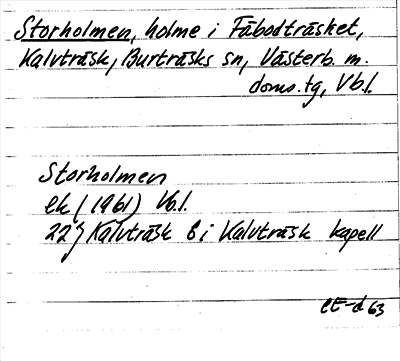 Storholmen, holme i Fäbodträsket,
Kalvträsk, Burträsks sn, Västerb. m.
doms.tg, Vb.l.
Storholmen
ek (1961) Vb.l.
22j Kalvträsk 8 i Kalvträsk kapell
63